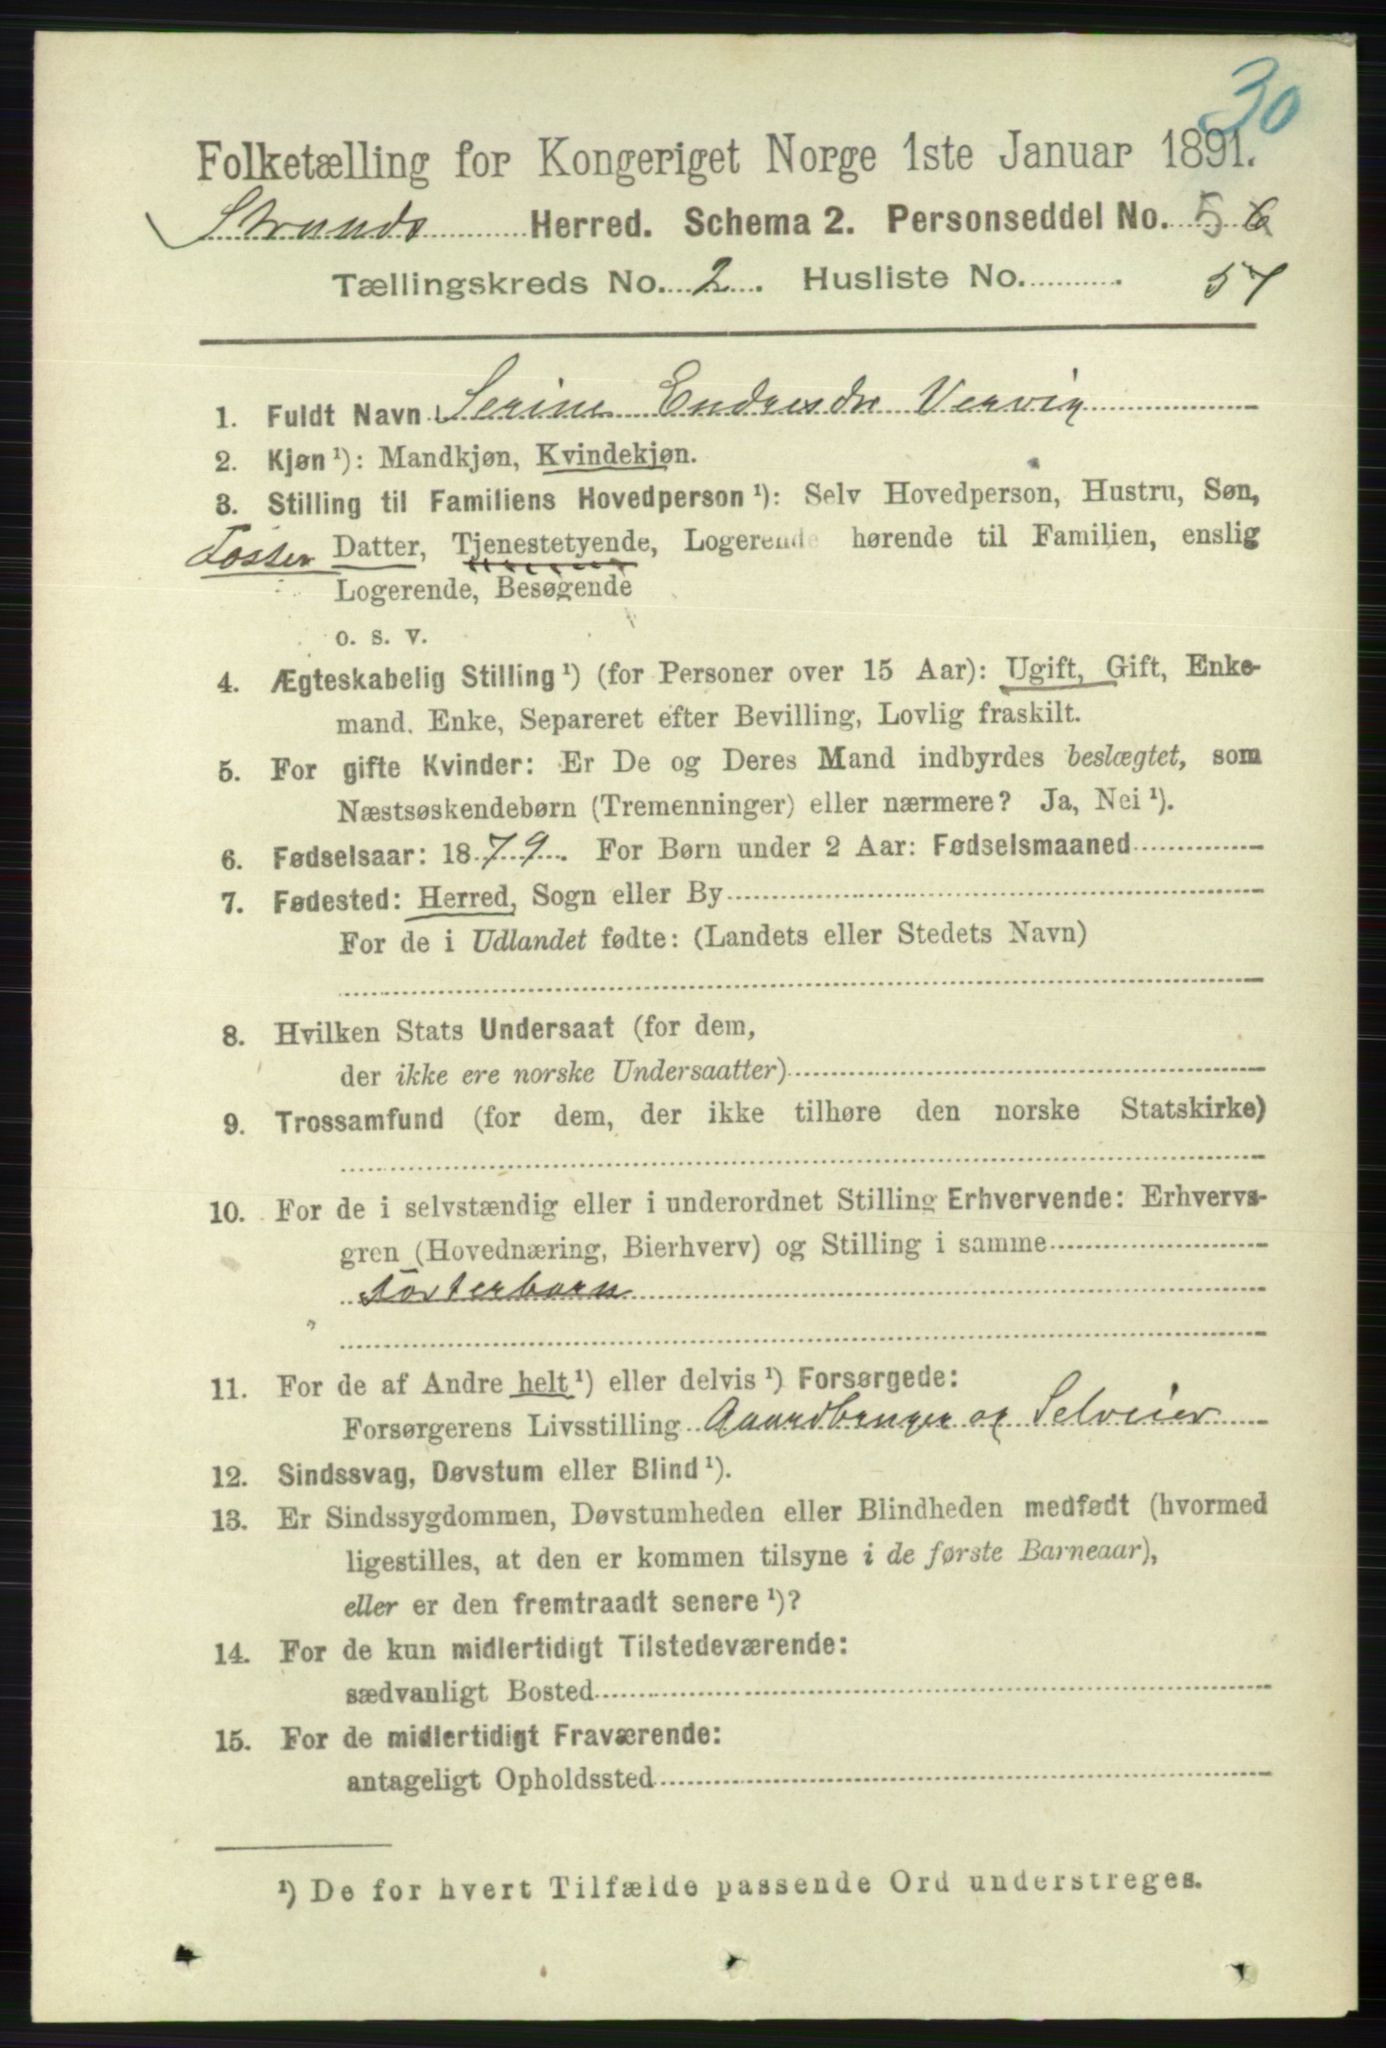 30
Folketælling for Kongeriget Norge 1ste Januar 1891.
Strands Herred. Schema 2. Personseddel No. 5 6
Tællingskreds No. 2. Husliste No. 57
1. Fuldt Navn Serine Endresdr Vervig
2. Kjøn ¹): Mandkjøn, Kvindekjøn.
3. Stilling til Familiens Hovedperson ¹): Selv Hovedperson, Hustru, Søn,
Foster Datter, Tjenestetyende, Logerende hørende til Familien, enslig
Logerende, Besøgende
o. s. v.
4. Ægteskabelig Stilling ¹) (for Personer over 15 Aar): Ugift, Gift, Enke-
mand, Enke, Separeret efter Bevilling, Lovlig fraskilt.
5. For gifte Kvinder: Er De og Deres Mand indbyrdes beslægtet, som
Næstsøskendebørn (Tremenninger) eller nærmere? Ja, Nei ¹).
6. Fødselsaar: 1879. For Børn under 2 Aar: Fødselsmaaned
7. Fødested: Herred, Sogn eller By
For de i Udlandet fødte: (Landets eller Stedets Navn)
8. Hvilken Stats Undersaat (for dem,
der ikke ere norske Undersaatter)
9. Trossamfund (for dem, der ikke tilhøre den norske Statskirke)
10. For de i selvstændig eller i underordnet Stilling Erhvervende: Erhvervs-
gren (Hovednæring, Bierhverv) og Stilling i samme
Fosterbarn
11. For de af Andre helt ¹) eller delvis ¹) Forsørgede:
Forsørgerens Livsstilling Gaardbruger og Selveier
12. Sindssvag, Døvstum eller Blind ¹).
13. Er Sindssygdommen, Døvstumheden eller Blindheden medfødt (hvormed
ligestilles, at den er kommen tilsyne i de første Barneaar),
eller er den fremtraadt senere ¹)?
14. For de kun midlertidigt Tilstedeværende:
sædvanligt Bosted
15. For de midlertidigt Fraværende:
antageligt Opholdssted
¹) De for hvert Tilfælde passende Ord understreges.